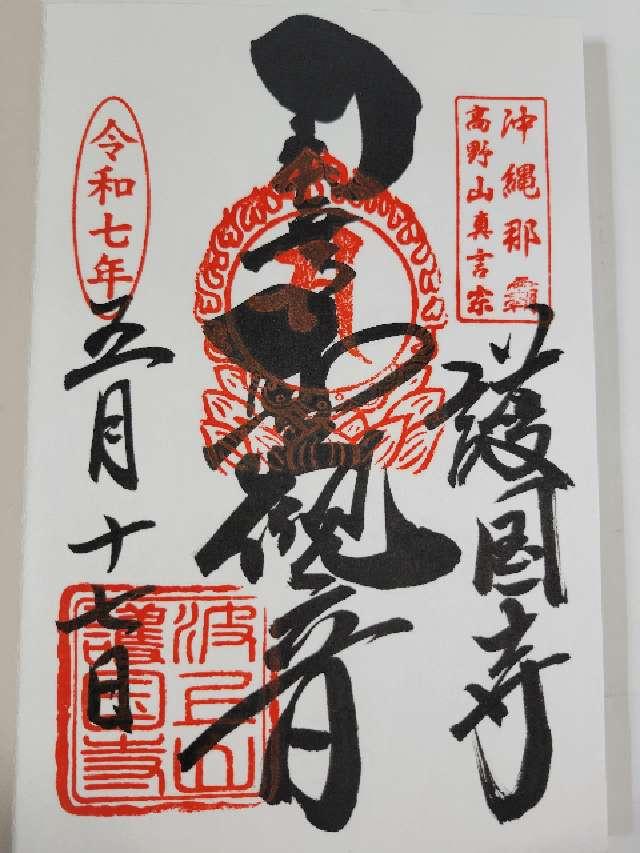 沖縄那覇
高野山真言宗
護国寺
聖観音
令和七年
五月十七日
波上山
護国寺